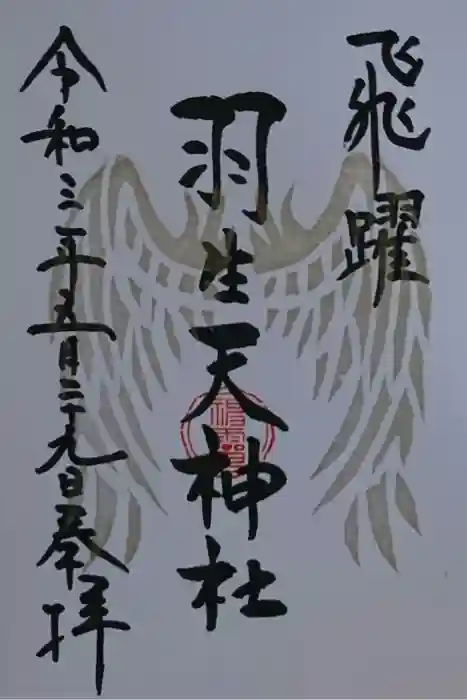 飛躍
羽生天神社
令和三年五月二十九日奉拝